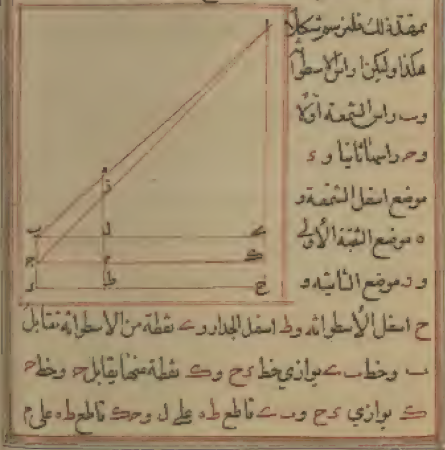 بمقدة ذلك فلنرسم شكلا
هكذا وليكن ا راس الاسطوانة
وب راس الشمعة اولا
وج راسها ثانيا و د
موضع اسفل الشمعة و
ه موضع الثقبة الأولى
و ر موضع الثانية و
ح اسفل الأسطوانة وط اسفل الجدار وى نقطة من الأسطوانة تقابل
ب وخط ب ى يوازي خط د ح وك نقطة منها يقابل ج وخط ج
ك يوازي د ح وب ى قاطع ط ه على ل وج ك قاطع ط ه على م
ا
ه
ر
ب
ل
ى
ج
م
ك
د
ط
ح